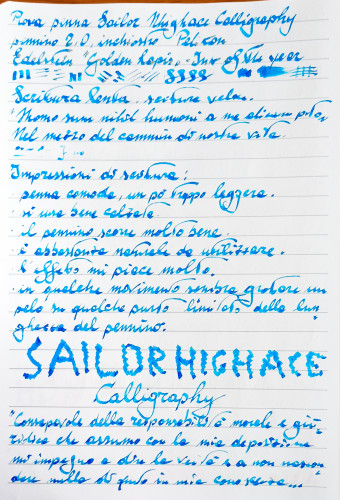 Prova penna Sailor Highace Calligraphy
pennino 2.0, inchiostro Pelikan
Edelstein "Golden Lapis", Ink of the year
Scrittura lenta, scrittura veloce.
"Homo sum nihil humani a me alienum puto"
Nel mezzo del cammin di nostra vita
Impressioni di scrittura:
· penna comoda, un po' troppo leggera.
· si usa bene calzata
· il pennino scorre molto bene.
· è abbastanza naturale da utilizzare.
· l'effetto mi piace molto.
· in qualche movimento sembra grattare un
pelo su qualche punto limitato della lun
ghezza del pennino.
SAILOR HIGHACE
Calligraphy
"Consapevole della responsabilità morale e giu-
ridica che assumo con la mia deposizione
mi impegno a dire la verità e a non nascon
dere nulla di quanto in mia conoscenza...